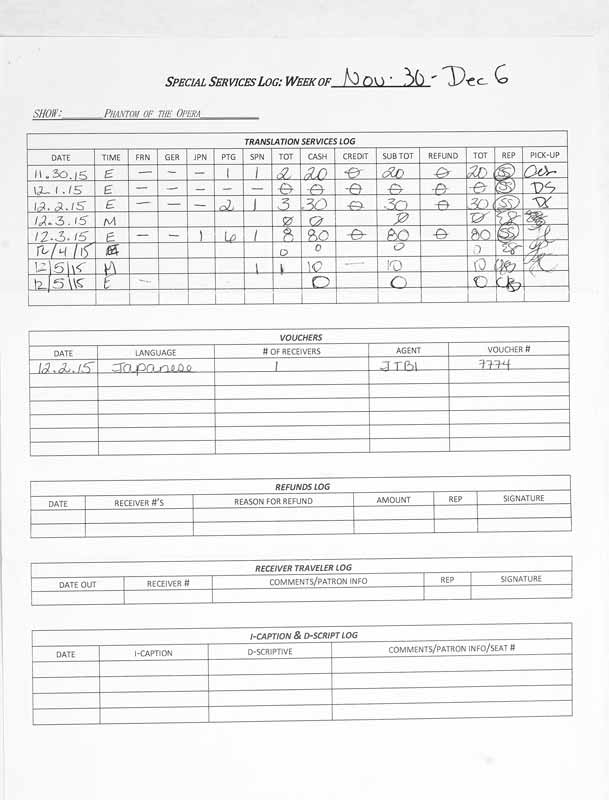 SPECIAL SERVICES LOG: WEEK OF Nov. 30 - Dec 6
SHOW: PHANTOM OF THE OPERA
TRANSLATION SERVICES LOG
DATE TIME FRN GER JPN PTG SPN TOT CASH CREDIT SUB TOT REFUND TOT REP PICK-UP
11.30.15 E - - - 1 1 2 20 0 20 0 20 SS
12.1.15 E - - - - - 0 0 0 0 0 0 SS DS
12.2.15 E - - - 2 1 3 30 0 30 0 30 SS
12.3.15 M 0 0 0 0
12.3.15 E - - 1 6 1 8 80 0 80 0 80 SS
12/4/15 E 0 0 0 0
12/5/15 M 1 1 10 - 10 10
12/5/15 E - 0 0 0
VOUCHERS
DATE LANGUAGE # OF RECEIVERS AGENT VOUCHER #
12.2.15 Japanese 1 JTBI 7774
REFUNDS LOG
DATE RECEIVER #'S REASON FOR REFUND AMOUNT REP SIGNATURE
RECEIVER TRAVELER LOG
DATE OUT RECEIVER # COMMENTS/PATRON INFO REP SIGNATURE
I-CAPTION & D-SCRIPT LOG
DATE I-CAPTION D-SCRIPTIVE COMMENTS/PATRON INFO/SEAT #